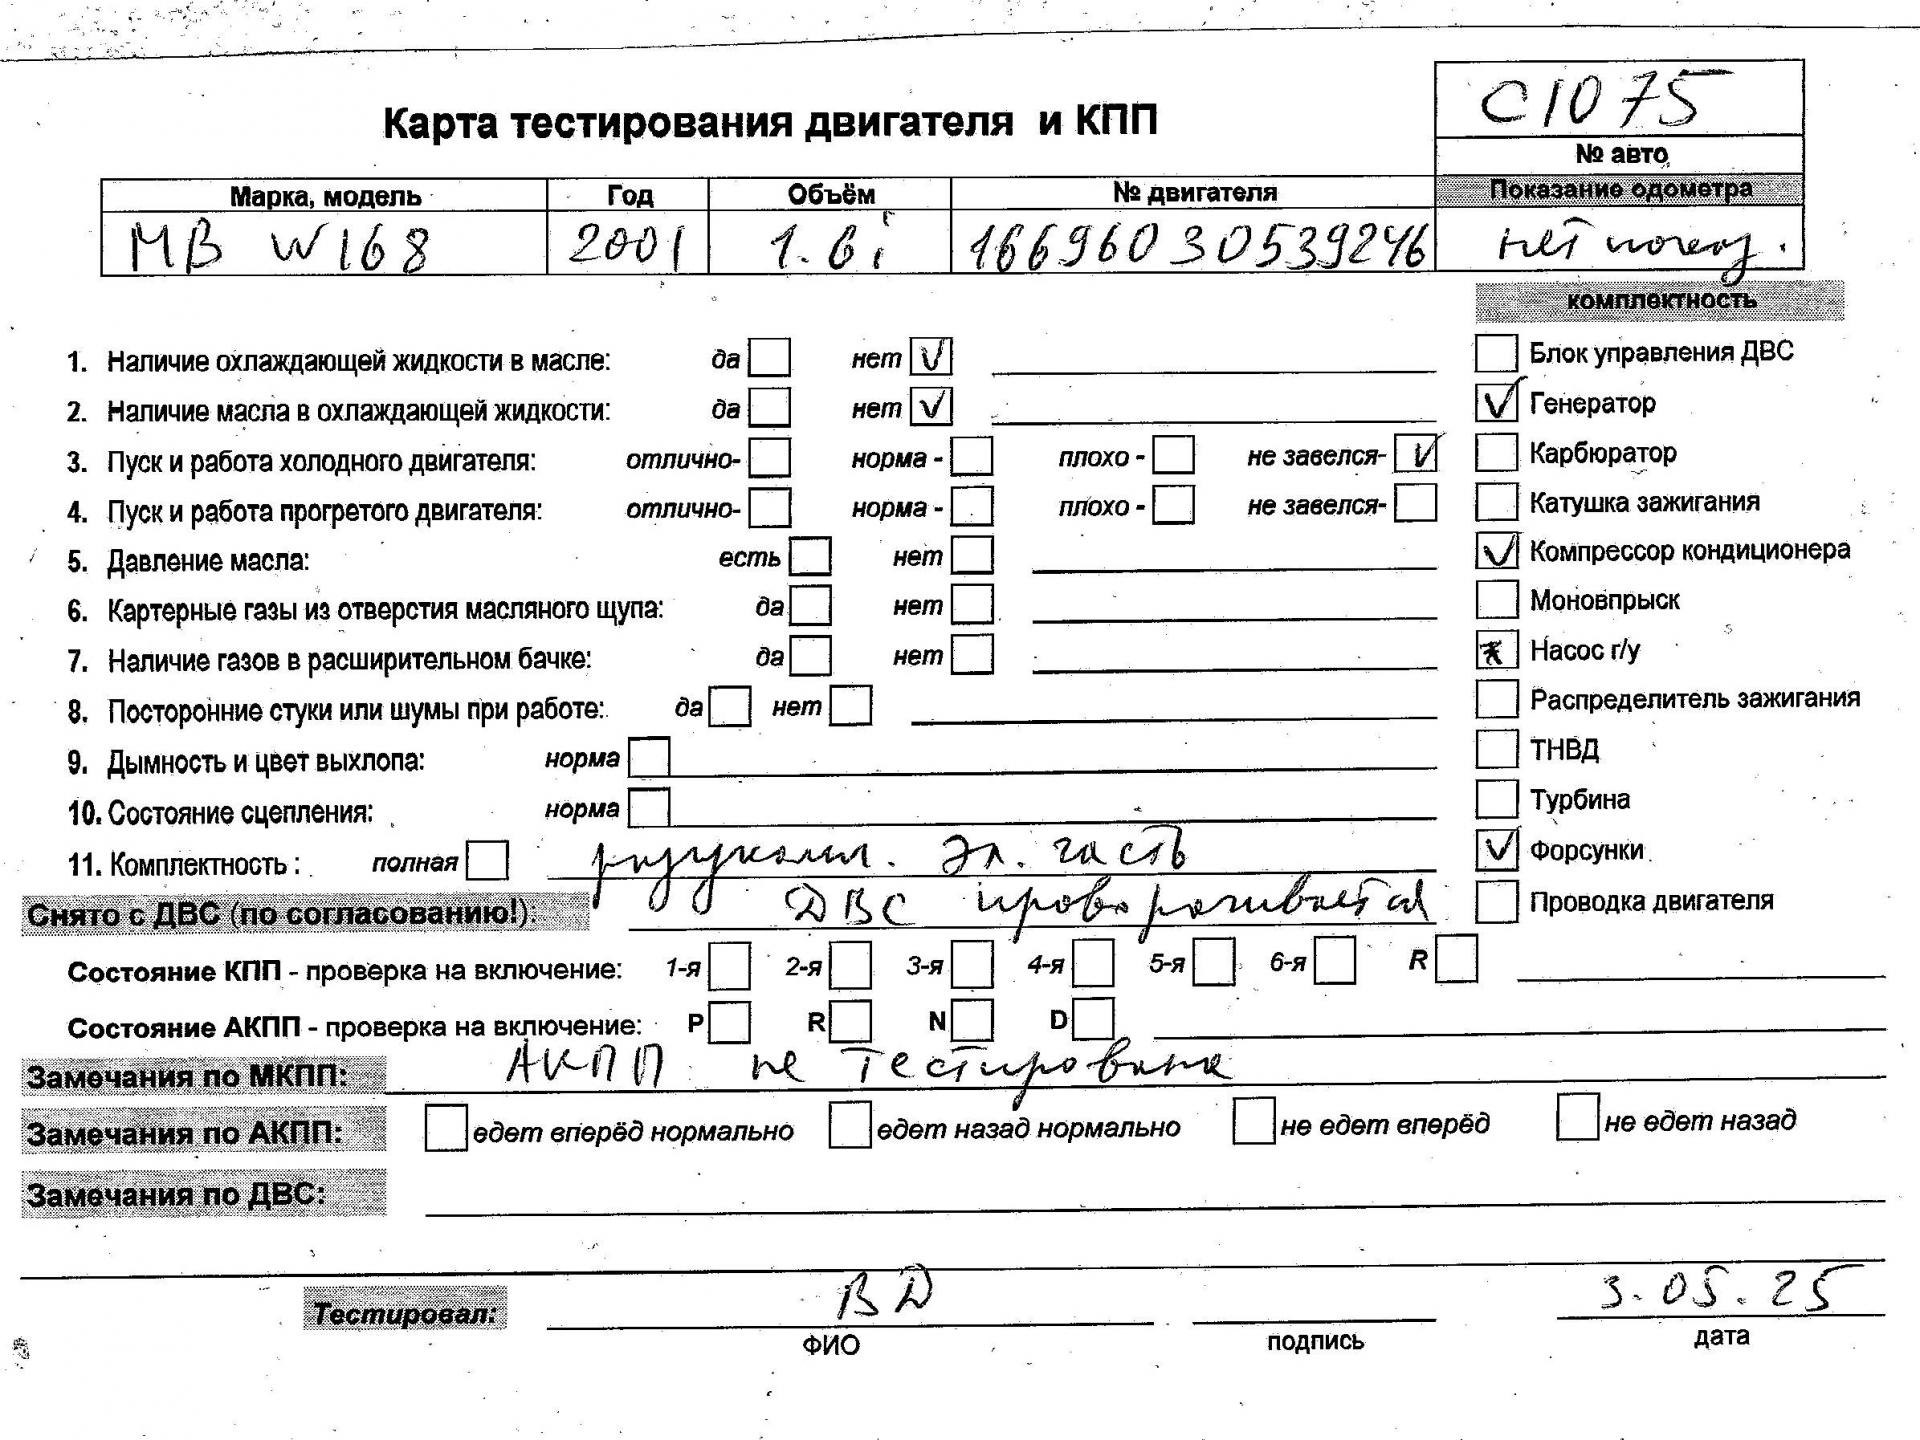 С1075
Карта тестирования двигателя и КПП
№ авто
Марка, модель Год Объём № двигателя Показание одометра
MB W168 2001 1.6i 16696030539246 нет показ.
комплектность
1. Наличие охлаждающей жидкости в масле: да нет V
Блок управления ДВС
2. Наличие масла в охлаждающей жидкости: да нет V
V Генератор
3. Пуск и работа холодного двигателя: отлично- норма - плохо - не завелся- V
Карбюратор
4. Пуск и работа прогретого двигателя: отлично- норма - плохо - не завелся-
Катушка зажигания
5. Давление масла: есть нет
V Компрессор кондиционера
6. Картерные газы из отверстия масляного щупа: да нет
Моновпрыск
7. Наличие газов в расширительном бачке: да нет
Насос г/у
8. Посторонние стуки или шумы при работе: да нет
Распределитель зажигания
9. Дымность и цвет выхлопа: норма
ТНВД
10. Состояние сцепления: норма
Турбина
11. Комплектность : полная разукомпл. эл. часть
V Форсунки
Снято с ДВС (по согласованию!): ДВС проворачивается
Проводка двигателя
Состояние КПП - проверка на включение: 1-я 2-я 3-я 4-я 5-я 6-я R
Состояние АКПП - проверка на включение: P R N D
Замечания по МКПП: АКПП не тестирована
Замечания по АКПП: едет вперёд нормально едет назад нормально не едет вперёд не едет назад
Замечания по ДВС:
Тестировал: ВД 3.05.25
ФИО подпись дата